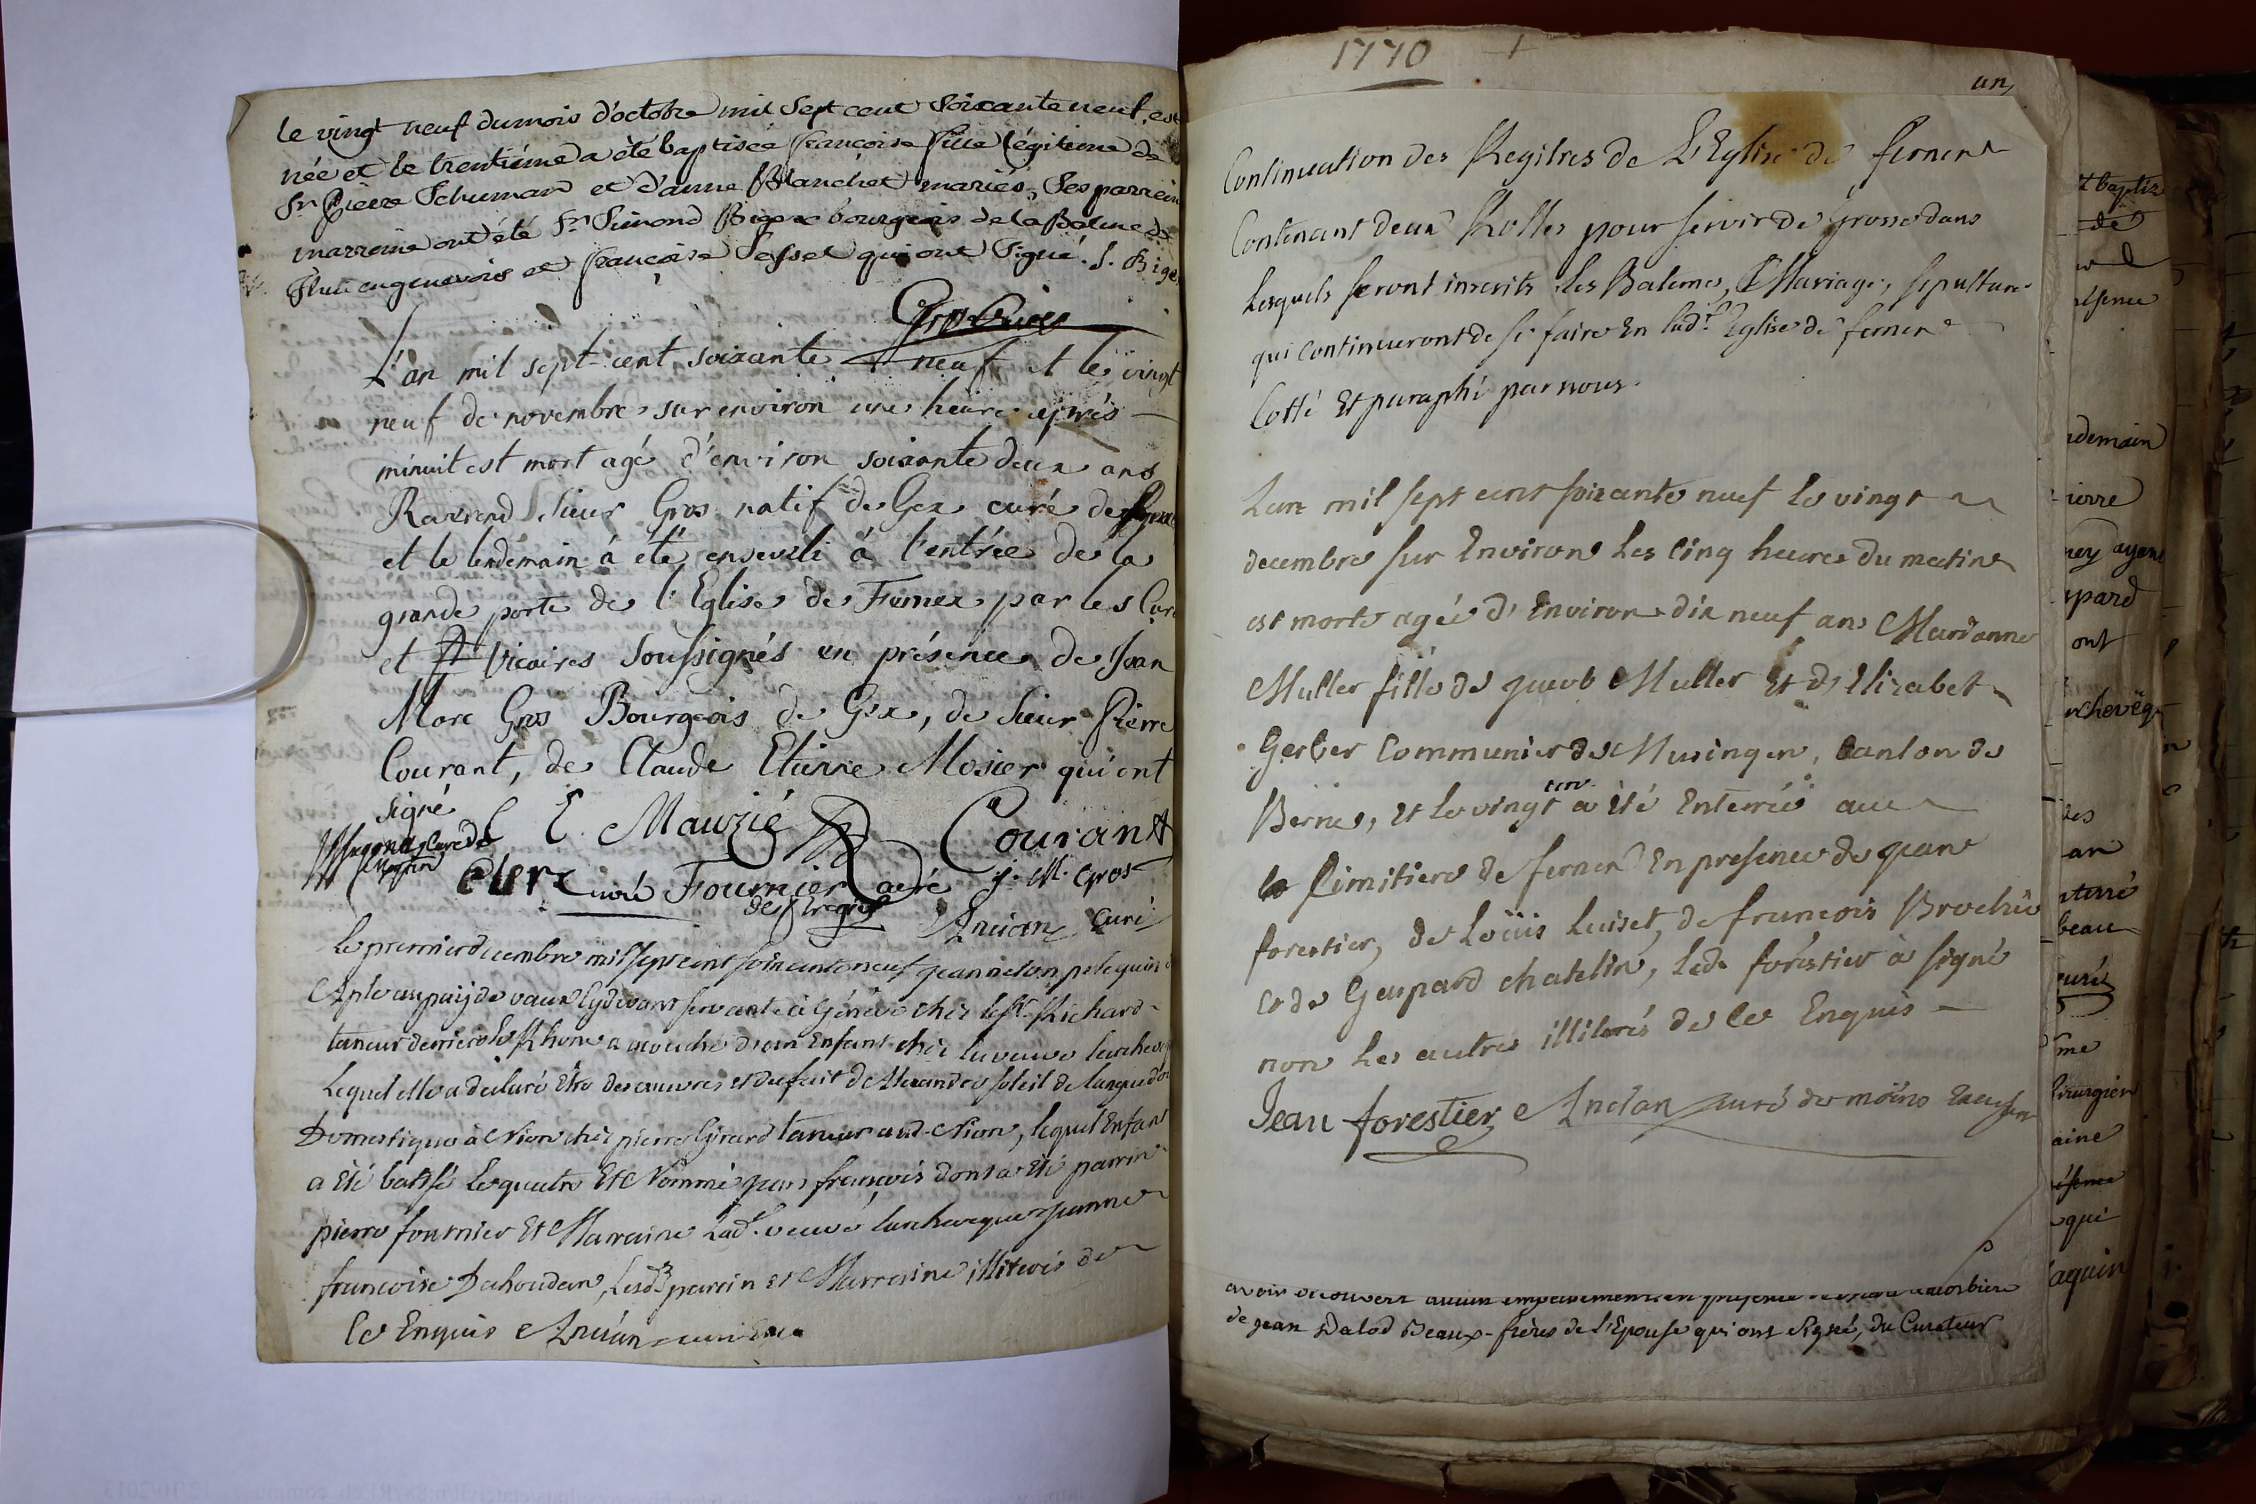 le vingt neuf du mois d'octobre mil sept cent soixante neuf, est
née et le trentième a été baptisée françoise fille légitime de
Sr. Pierre Schumar et d'anne Blanchet mariés, Ses parrein
marreine ont été Sr. Simond Bigex bourgeois de la Balme de
en genevois et françoise qui ont signé. S. Bige
Gros Curé
L'an mil sept-cent soixante neuf et le vingt
neuf de novembre sur environ une heure après
minuit est mort agé d'environ soixante deux ans
Révérend Sieur Gros natif de Gex curé de
et le lendemain à été enseveli à l'entrée de la
grande porte de l'Eglise de Fernex par les Cur
et Vicaires Soussignés en présence de Jean
Marc Gros Bourgeois de Gex, de Sieur Pierre
Courant, de Claude Etienne Mosier qui ont
signé
E. Mauzié Courant
Curé de Meyrin
curé Fournier curé J. M. Gros
Ancian Curé
Le premier decembre mil sept cent soixante neuf jeanneton
au païj de vaux cy devant servante à Géneve chez le Sr. Richard
taneur derriere le Rhone a acouché d'un Enfant chez la veuve larcheveq
Lequel elle a declaré Etre des œuvres et du fait d'Alexandre soleil de languedoc
Domestique à Nion chez pierre Girard taneur aud. Nion, lequel Enfant
a Eté batisé le quatre Et Nommé jean françois dont a Eté parrin
pierre fournier Et Marraine Lad. veuve larcheveque jeanne
francoise Dahoudan, Lesds. parrin et Marraine illiterés de
Ce Enquis Ancian curé
1770
un
Continuation des Regitres de L'Eglise de fernex
Contenant deux Rolles pour servir de grosse dans
Lesquels seront inscrits Les Batemes, Mariage, sepulture
qui continueront de se faire En ladt. Eglise de fernex
Cotté Et paraphé par nous.
Lan mil sept cent soixante neuf le vingt
decembre sur Environ Les Cinq heures du matin
est morte agée d'Environ dix neuf ans Marianne
Muller fille de jacob Muller Et d'Elizabet
Gerber Communier de Musingen, Canton de
Berne, et le vingt un a été Enterrée au
le Cimitiere de fernex En presence de jean
forestier, de Loüis Luiset, de francois Brochû
et de Gaspard chatelin, led. foréstier à signé
non Les autres illiterés de Ce Enquis
Jean forestier Ancian curé de moëns
avoir decouvert aucun empechement en presence
de jean Dalod Beaux-frères de l'Epouse qui ont signé, du Curateur
t baptiz
de
ésence
ndemain
ierre
ney ayent
spard
ont
rchevêq
les
an
nterré
beau
curé
me
hirurgien
aine
ésence
qui
aquin